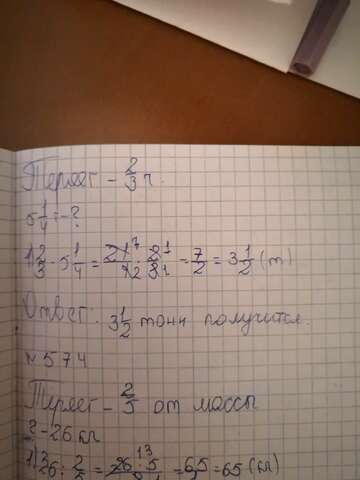 Теряет - 2/3 ч.
5 1/4 т - ?
1) 2/3 · 5 1/4 = 21/4 · 2/3 = 7/2 = 3 1/2 (т)
Ответ: 3 1/2 тонн получится.
№ 574
Теряет - 2/5 от массы
? - 26 кг
1) 26 : 2/5 = 26 · 5/2 = 65 = 65 (кг)